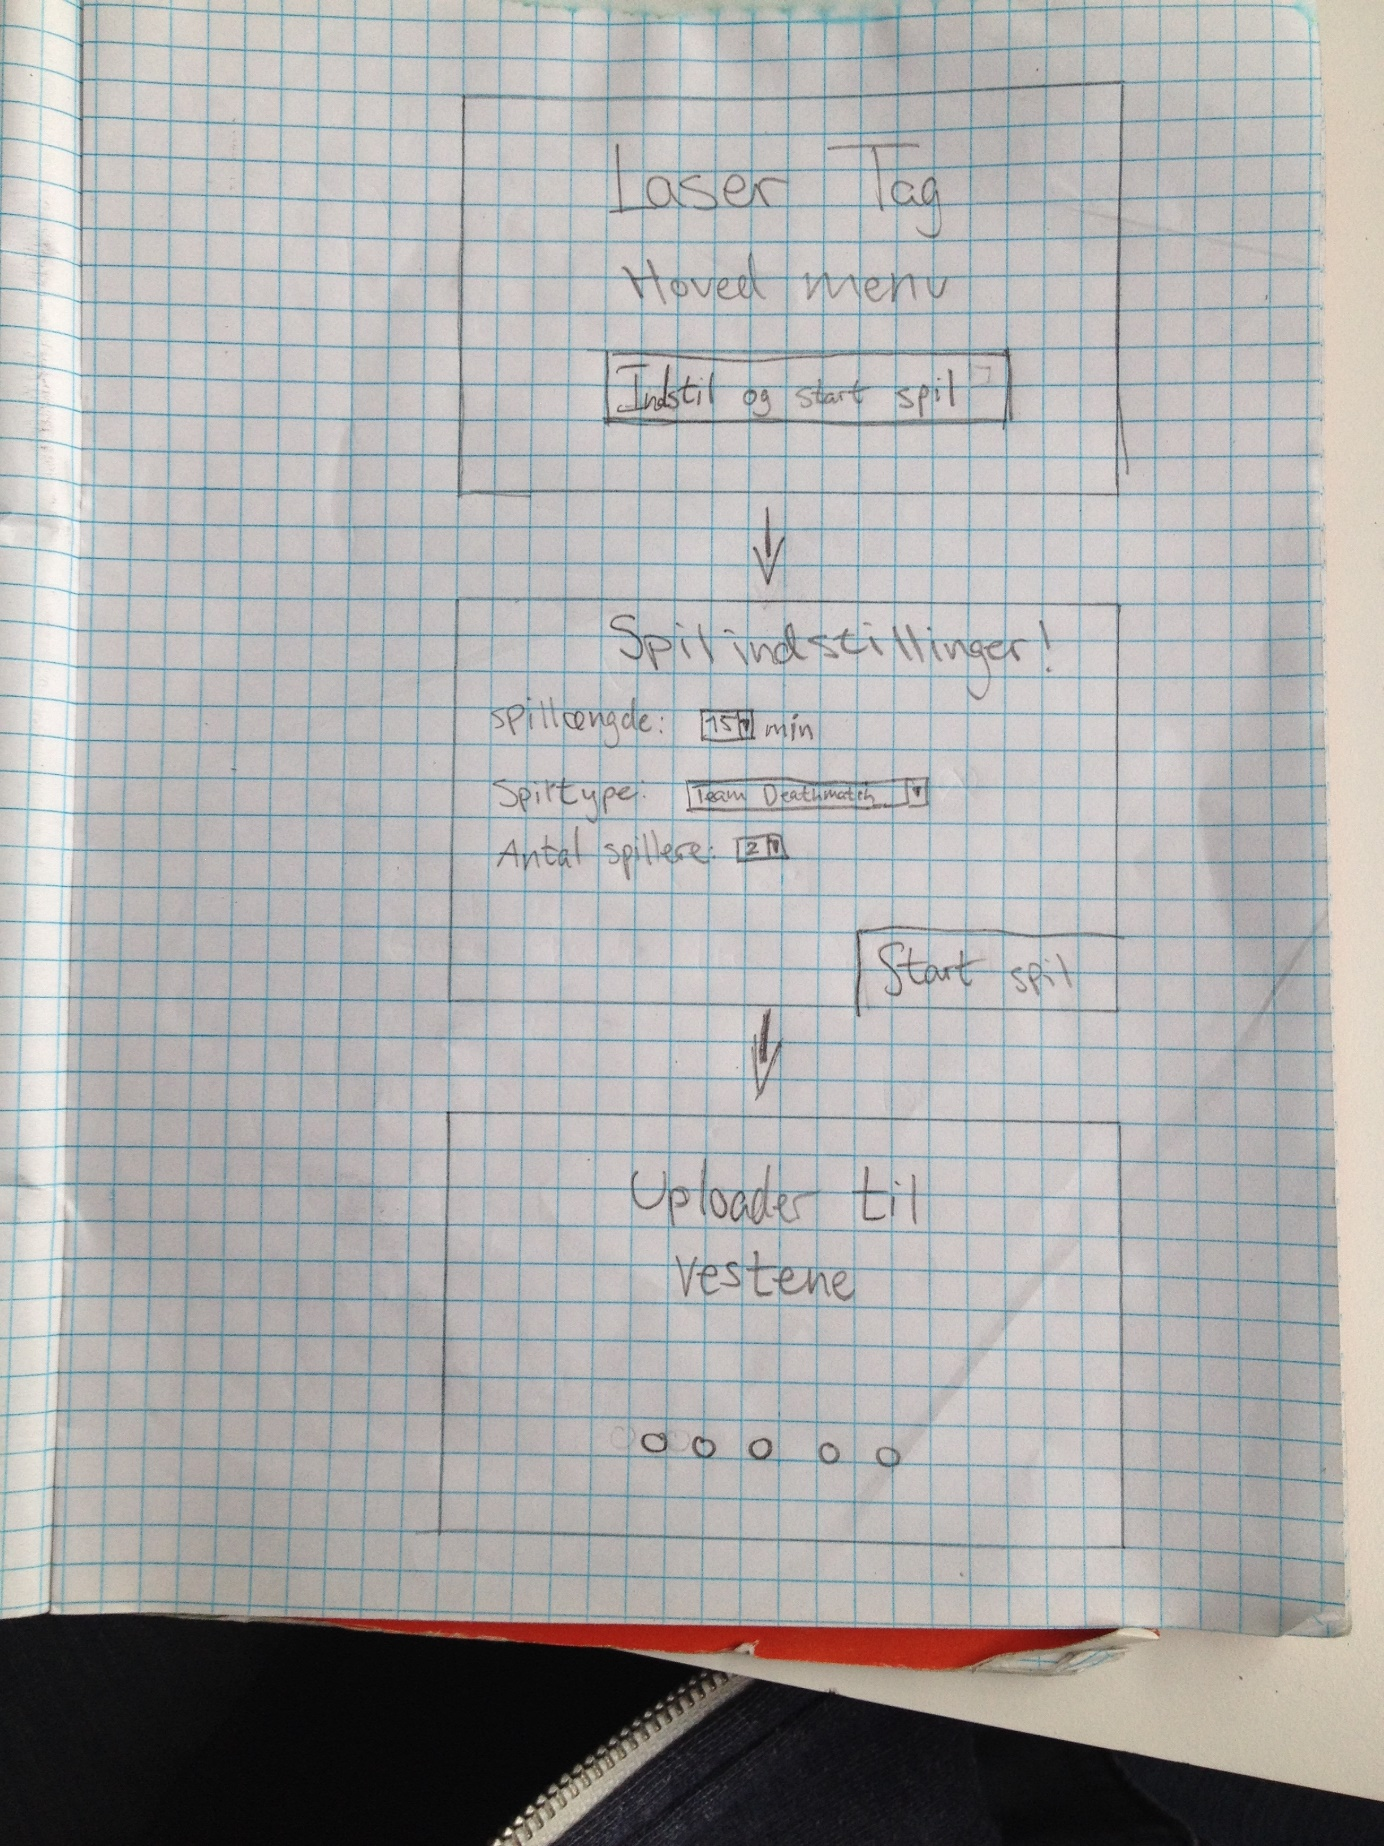 Laser Tag
Hoved menu
Indstil og start spil
Spil indstillinger!
spillængde: 15 min
Spiltype: Team Deathmatch
Antal spillere: 2
Start spil
Uploader til
vestene